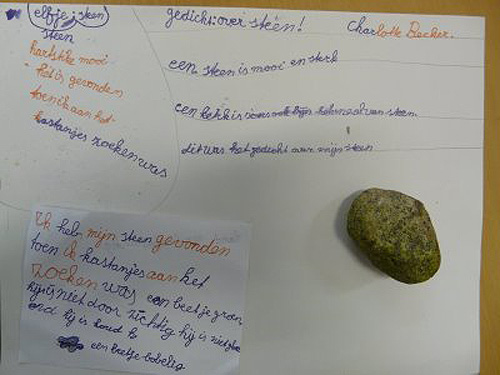 elfje: steen
steen
hartstikke mooi
het is gevonden
toen ik aan het
kastanjes zoeken was
gedicht: over steen!
Charlotte Becker.
een steen is mooi en sterk
een kerk is helemaal van steen
dit was het gedicht over mijn steen
ik heb mijn steen gevonden
toen ik kastanjes aan het
zoeken was een beetje groen
hij is niet door zichtig hij is
hij is koud
een beetje bobelig